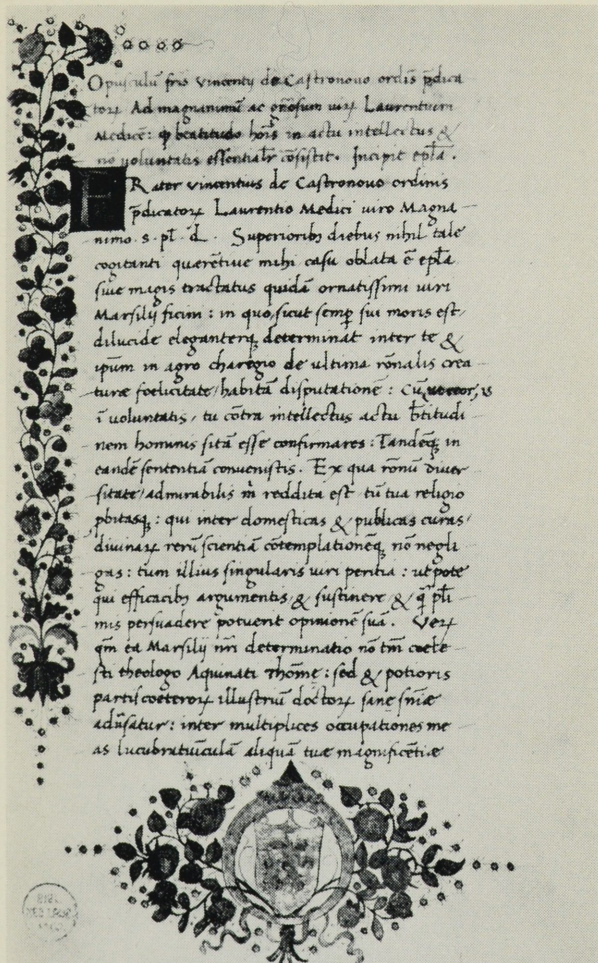 Opusculũ fris Vincentij de Castronouo ordĩs p̃dica
torꝝ Ad magnanimũ ac gñosum uirꝝ Laurentium
Medicẽ: ꝙ beatitudo hoĩs in actu intellectus &
nõ uoluntatis essentialr̃ cõsistit. Incipit ep̃la.
FRater Vincentius de Castronouo ordinis
p̃dicatorꝝ Laurentio Medici uiro Magna
nimo .s. pl̃. d̃. Superioribꝫ diebus nihil tale
cogitanti quærẽtiue mihi casu oblata ẽ ep̃la
siue magis tractatus quidã ornatissimi uiri
Marsilij ficini: in quo, sicut semp̱ sui moris est,
dilucide eleganterqꝫ determinat inter te &
ip̃um in agro charegio de ultima rõnalis crea
turæ foelicitate/habitã disputationẽ:
ĩ uoluntatis, tu cõtra intellectus actu b̃titudi
nem hominis sitã esse confirmares: Tandẽqꝫ in
eandẽ sententiã conuenistis. Ex qua rõnũ diuer
sitate/admirabilis m̃ reddita est tũ tua religio
p̱bitasqꝫ: qui inter domesticas & publicas curas/
diuinarꝝ rerũ scientiã cõtemplationẽqꝫ nõ negli
gas: tum illius singularis uiri peritia: utpote
qui efficacibꝫ argumentis & sustinere & q̃ pl̃i
mis persuadere potuerit opinionẽ suã. Verꝝ
qm̃ ea Marsilij nr̃i determinatio nõ tm̃ coele
sti theologo Aquinati Thome: sed & potioris
partis coeterorꝝ illustriũ doctorꝝ sane sñiæ
aduersatur: inter multiplices occupationes me
as lucubratiũculã aliquã tuæ magnificẽtiæ